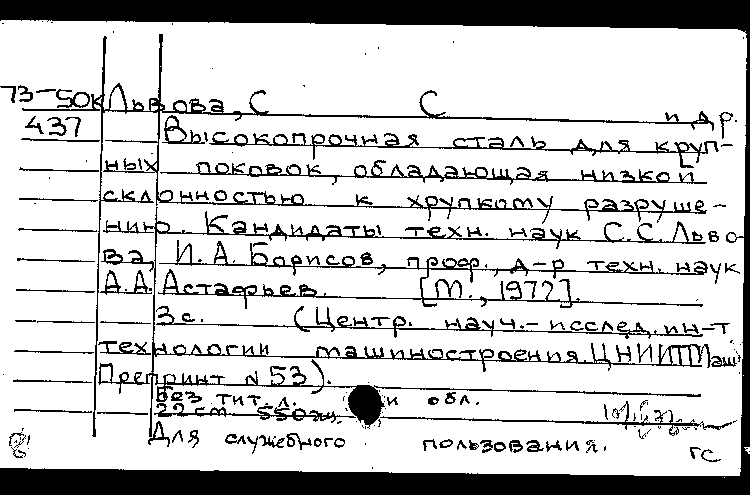 73-50к Львова, С С и др.
437 Высокопрочная сталь для круп-
ных поковок, обладающая низкой
склонностью к хрупкому разруше-
нию. Кандидаты техн. наук С.С. Льво-
ва, И.А. Борисов, проф., д-р техн. наук
А.А. Астафьев. [М., 1972].
3 с. (Центр. науч.-исслед. ин-т
технологии машиностроения. ЦНИИТМаш
Препринт № 53).
Без тит. л. и обл.
22 см 550 экз.
Для служебного пользования.
ГС